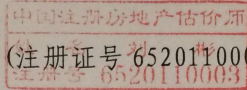 中国注册房地产估价师
刘 彬
(注册证号 652011000
注册号 6520110003